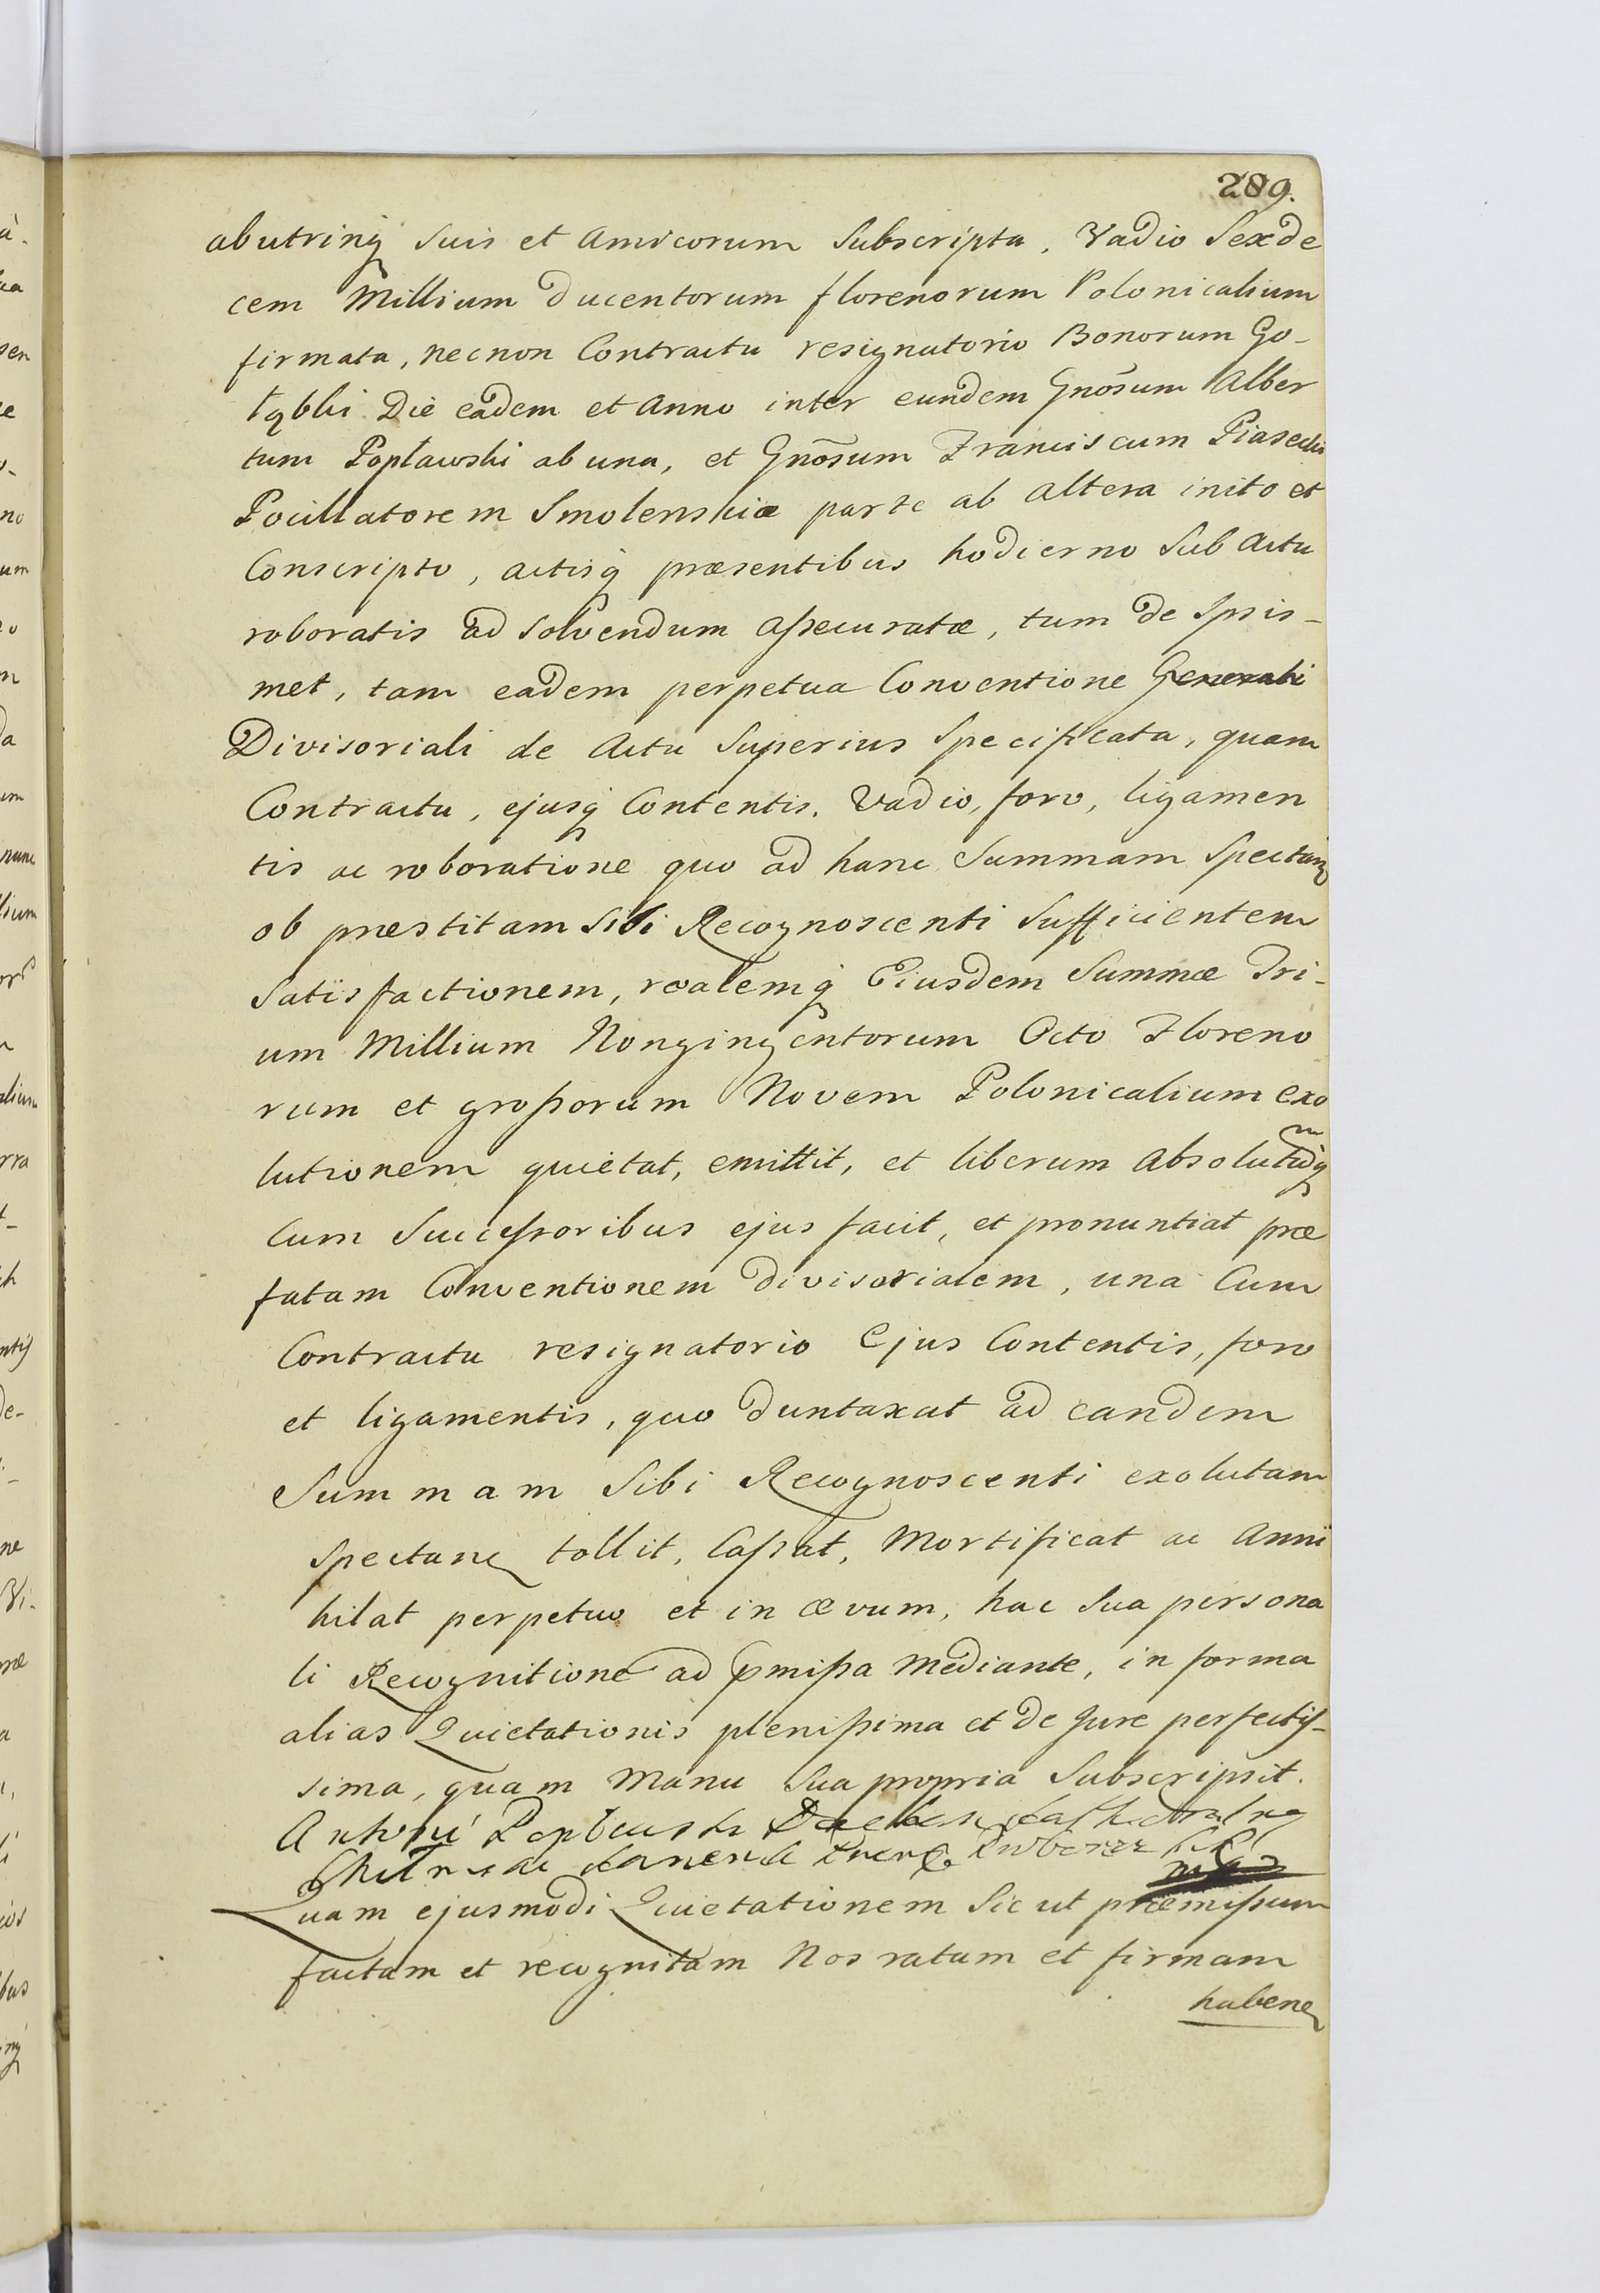 289.
abutrinq suis et Amicorum Subscripta, Vadio Sexde
cem Millium Ducentorum florenorum Polonicalium
firmata, nec non Contractu resignatorio Bonorum Go-
Die eadem et Anno inter eundem Gnosum Alber
tum Popławski ab una, et Gnosum Franciscum Piasecki
Pocillatorem Smolenskiæ parte ab altera inito et
Conscripto, actisq præsentibus hodierno Sub Actu
roboratis ad Solvendum assecuratæ, tum de Ipsis-
met, tam eadem perpetua Conventione Generali
Divisoriali de Actu Superius Specificata, quam
Contractu, ejusq Contentis, Vadio, foro, ligamen
tis ac roboratione quo ad hanc Summam Spectan
ob præstitam Sibi Recognoscenti Sufficientem
Satisfactionem, realemq Eiusdem Summæ Tri-
um Millium Nongingentorum Octo Floreno
rum et grossorum Novem Polonicalium exo
lutionem quietat, emittit, et liberum absolutumq
Cum Successoribus ejus facit, et pronuntiat præ
fatam Conventionem divisorialem, una Cum
Contractu resignatorio Ejus Contentis, foro
et ligamentis, quo duntaxat ad eandem
Summam Sibi Recognoscenti exolutam
Spectan tollit, Cassat, Mortificat ac Anni
hilat perpetuo et in ævum, hac Sua persona
li Recognitione ad pmissa Mediante, in forma
alias Quietationis plenissima et de Jure perfectis-
sima, quam Manu Sua propria Subscripsit.
Antoni Popławski
Quam ejusmodi Quietationem Sic ut præmissum
factam et recognitam Nos ratam et firmam
haben